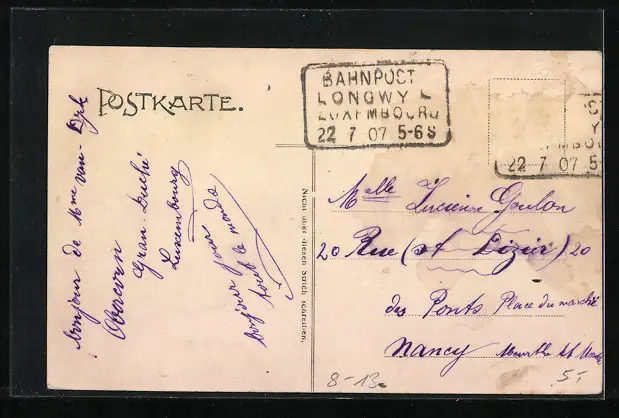 POSTKARTE.
Bonjour de Mme van-Dyk
Gran-Duché
Luxembourg
bonjour pour
tout le monde
Nicht über diesen Strich schreiben.
BAHNPOST
LONGWY L
LUXEMBOURG
22 7 07 5-6 S
22 7 07 5-
Melle Lucienne Goulon
20 Rue (St Dizier) 20
des Ponts Place du marché
Nancy Meurthe et
8-13.
5.-